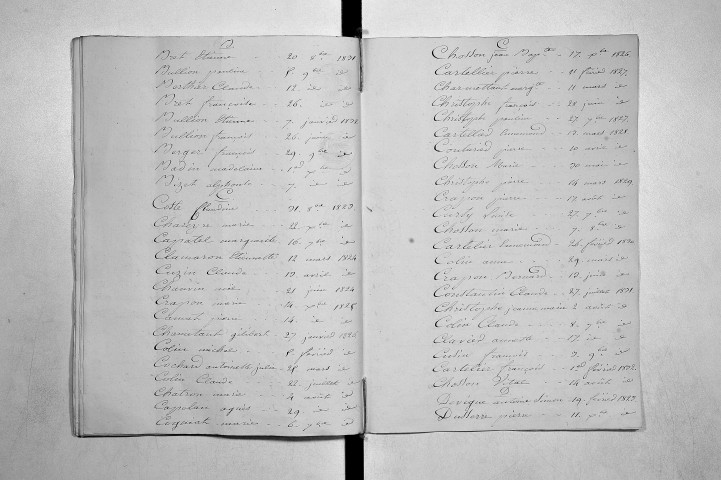 B
Bret Etienne 20 8bre 1831
Bullion pauline 8 9bre id
Berthier Claude 12 id id
Bret françoise 26. id id
Bullion Etienne 7. janvier 1832
Bullion françois 26 id
Berger francois 29. 9bre id
Badin madelaine 1er xbre id
Bizet alphonse 7. id id
C
Coste Claudine 31. 8bre 1823
marie 22 xbre id
Capatel marguerite 16 9bre id
Clamaron Etiennette 12 mars 1824
Cuzin Claude 13 avril id
Chauvin 21 juin 1824
Crapon marie 24. xbre 1825
Camet pierre 14. id id
Chavutant gilibert 27 janvier 1826
Colin michel 8 février id
Cochard antoinette julie 28 mars id
Colin Claude 22 juillet id
Chatron marie 4 août id
Capelan 29. id id
marie 6 id
C
Chosson jean Bapte 17. xbre 1826
Cartellier pierre 11 février 1827.
11 mars id
Christophe françois 28 juin id
Christophe pauline 27 9bre 1827.
Cartellad 17. mars 1828.
Coulaud pierre 10 avril id
Chosson Marie 30 mai id
Christophe pierre 14 mars 1829.
Crapon pierre 17 août id
27. 9bre id
Chosson marie 7. 8bre id
Cartelier 26. février 1830
Colin anne 29. mars id
Crapon Bernard 13. juin id
Constantin Claude 27. juillet 1831.
Christophe jeanne marie 2 août id
Colin Claude 8. id
Clavied annette 17. id id
françois 9. 9bre id
Cartelier françois 1er février 1832.
Chosson Vital 14 août id
D
Simon 19. février 1823.
Dutterre pierre 11. xbre id